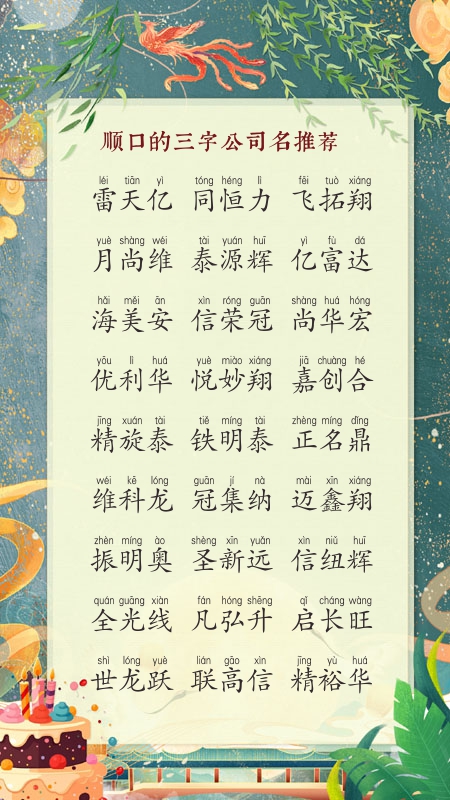 顺口的三字公司名推荐
léi tiān yì tóng héng lì fēi tuò xiáng
雷天亿 同恒力 飞拓翔
yuè shàng wéi tài yuán huī yì fù dá
月尚维 泰源辉 亿富达
hǎi měi ān xìn róng guān shàng huá hóng
海美安 信荣冠 尚华宏
yōu lì huá yuè miào xiáng jiā chuàng hé
优利华 悦妙翔 嘉创合
jīng xuán tài tiě míng tài zhèng míng dǐng
精旋泰 铁明泰 正名鼎
wéi kē lóng guān jí nà mài xīn xiáng
维科龙 冠集纳 迈鑫翔
zhèn míng ào shèng xīn yuǎn xìn niǔ huī
振明奥 圣新远 信纽辉
quán guāng xiàn fán hóng shēng qǐ cháng wàng
全光线 凡弘升 启长旺
shì lóng yuè lián gāo xìn jīng yù huá
世龙跃 联高信 精裕华